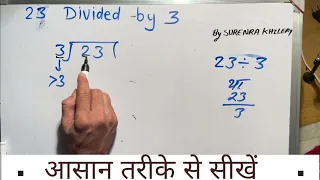 23 Divided by 3
By SURENRA KHILERY
3)23(
23÷3
>3
23
3
आसान तरीके से सीखें